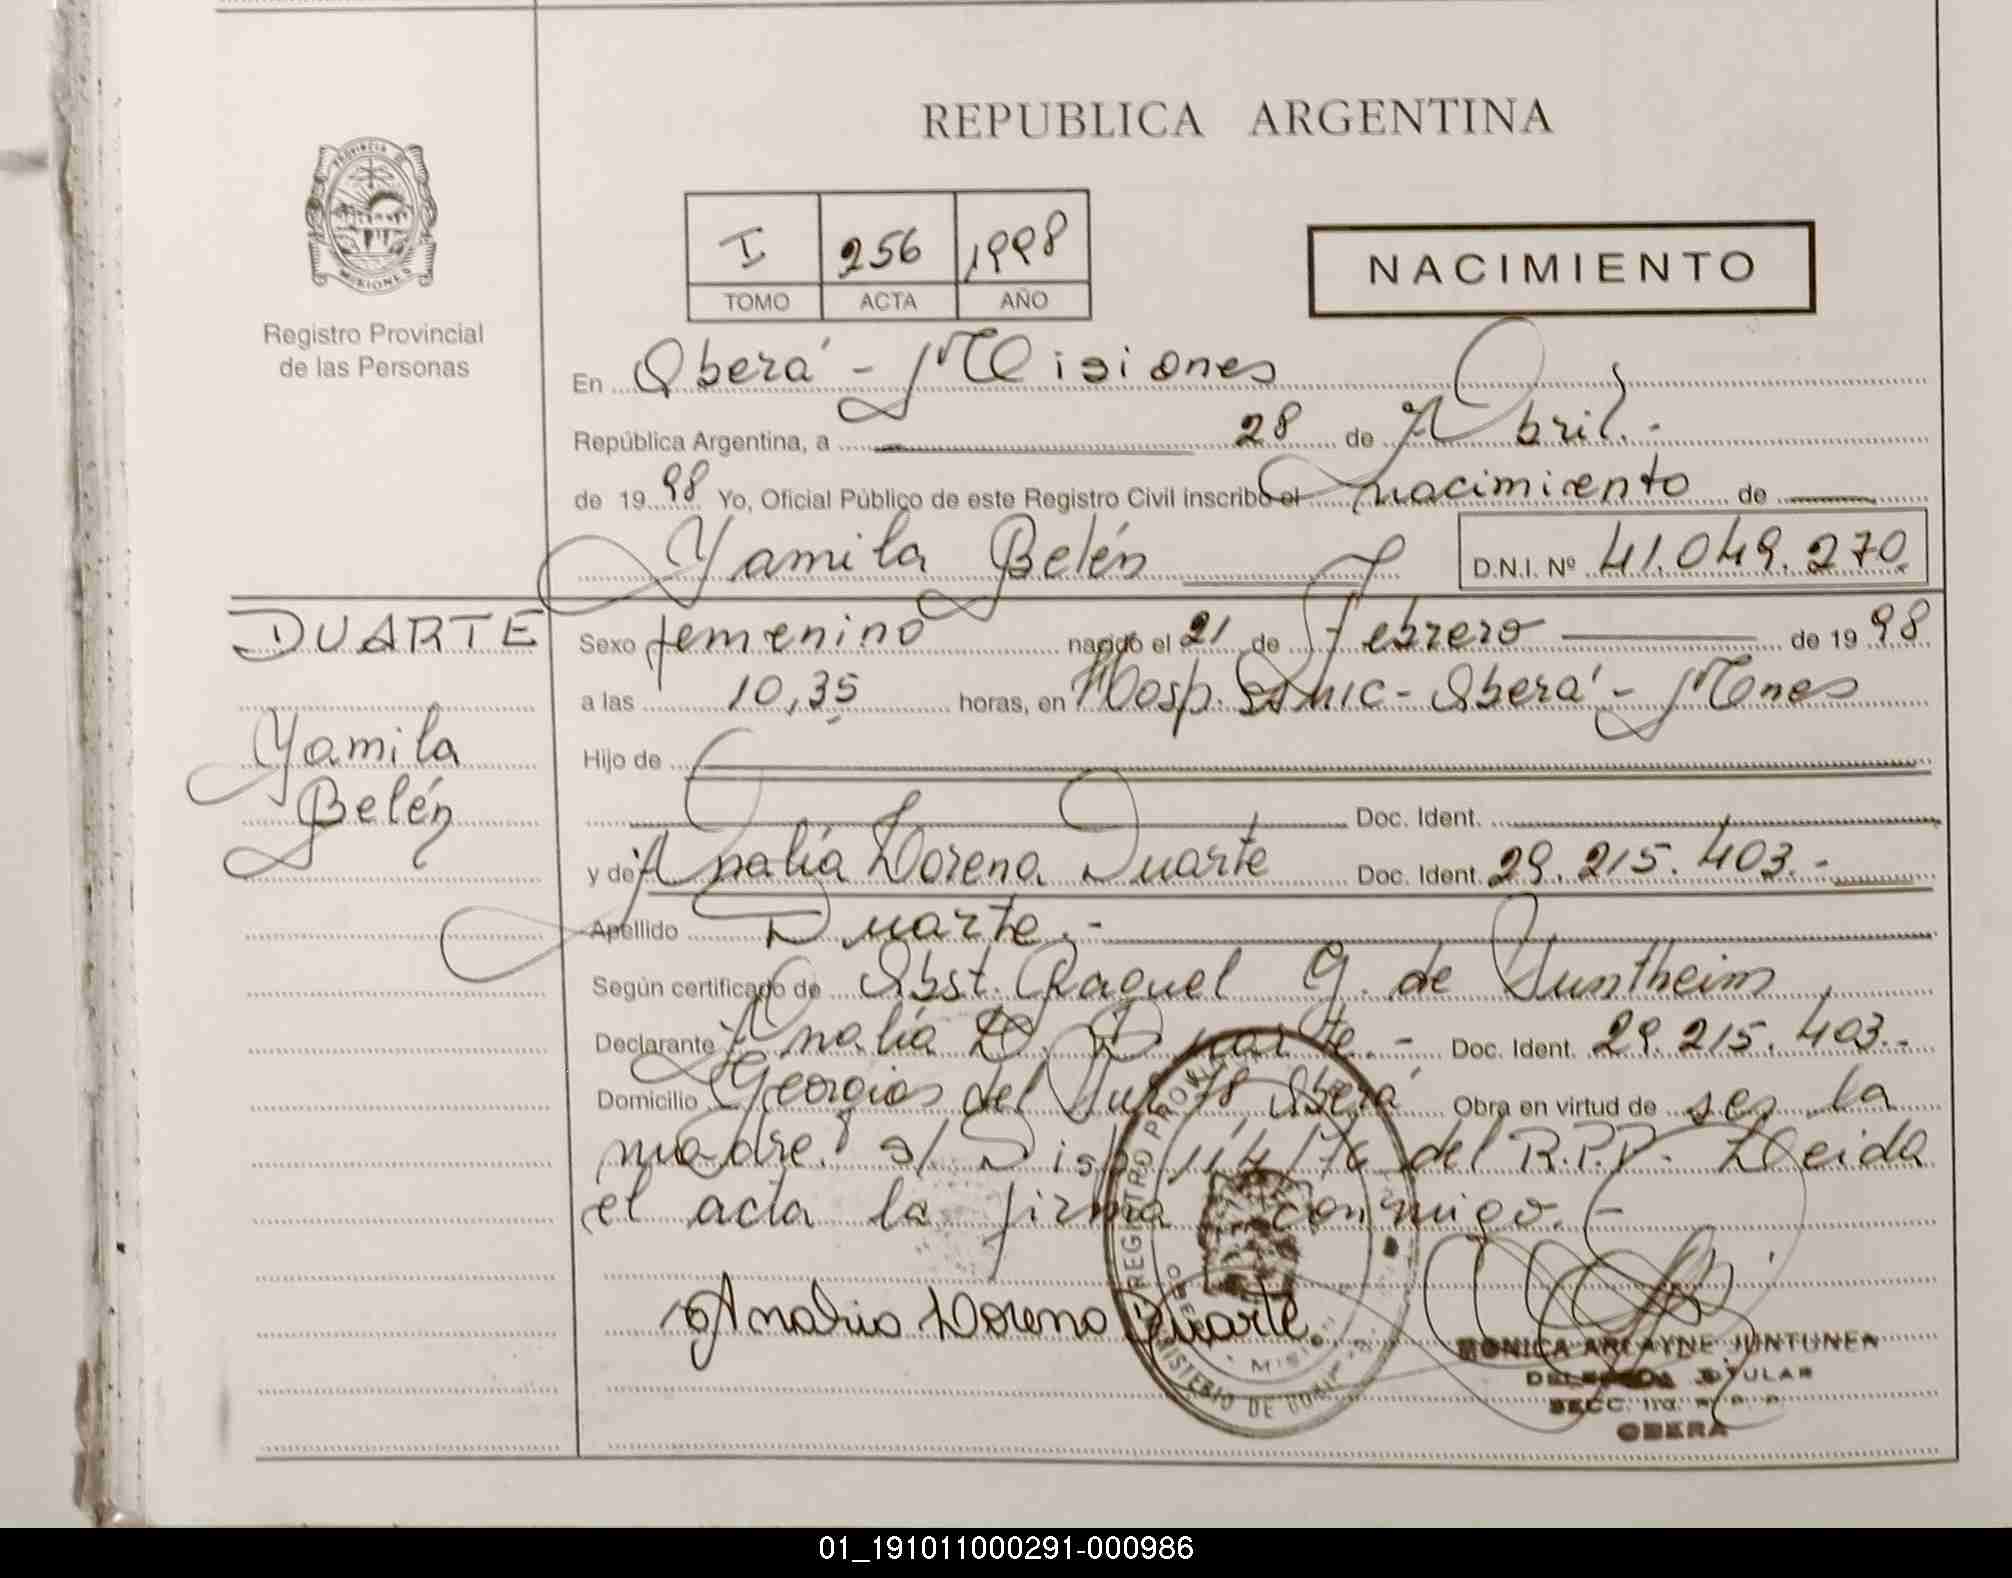 REPUBLICA ARGENTINA
PROVINCIA DE
MISIONES
Registro Provincial
de las Personas
I 256 1998
TOMO ACTA AÑO
NACIMIENTO
En Oberá - Misiones
República Argentina, a 28 de Abril.-
de 19 98 Yo, Oficial Público de este Registro Civil inscribo el nacimiento de
Yamila Belén D.N.I. Nº 41.049.270.
DUARTE
Yamila
Belén
Sexo femenino nacido el 21 de Febrero de 19 98
a las 10,35 horas, en Hosp. Samic - Oberá - Mnes
Hijo de
Doc. Ident.
y de Analía Lorena Duarte Doc. Ident. 29.215.403.-
Apellido Duarte.-
Según certificado de Obst. Raquel G. de Suntheim
Declarante Analía L. Duarte.- Doc. Ident. 29.215.403.-
Domicilio Georgias del Sur 78 Oberá Obra en virtud de ser la
madre. s/ Disp. 114/76 del R.P.P. Leída
el acta la firma conmigo.-
Analia Lorena Duarte.
REGISTRO
MINISTERIO DE
MONICA ARLAYNE JUNTUNEN
DELEGADA TITULAR
SECC. 1ra. R. P. P.
OBERA
01_191011000291-000986